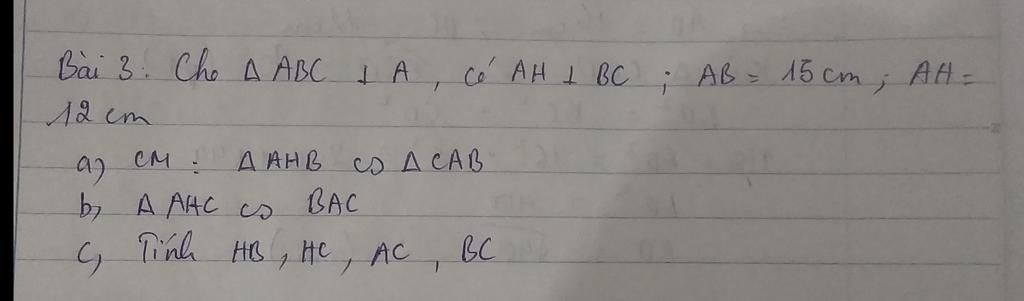 Bài 3: Cho Δ ABC ⊥ A, có AH ⊥ BC; AB = 15 cm; AH =
12 cm
a) CM: Δ AHB ∽ Δ CAB
b) Δ AHC ∽ BAC
c) Tính HB, HC, AC, BC